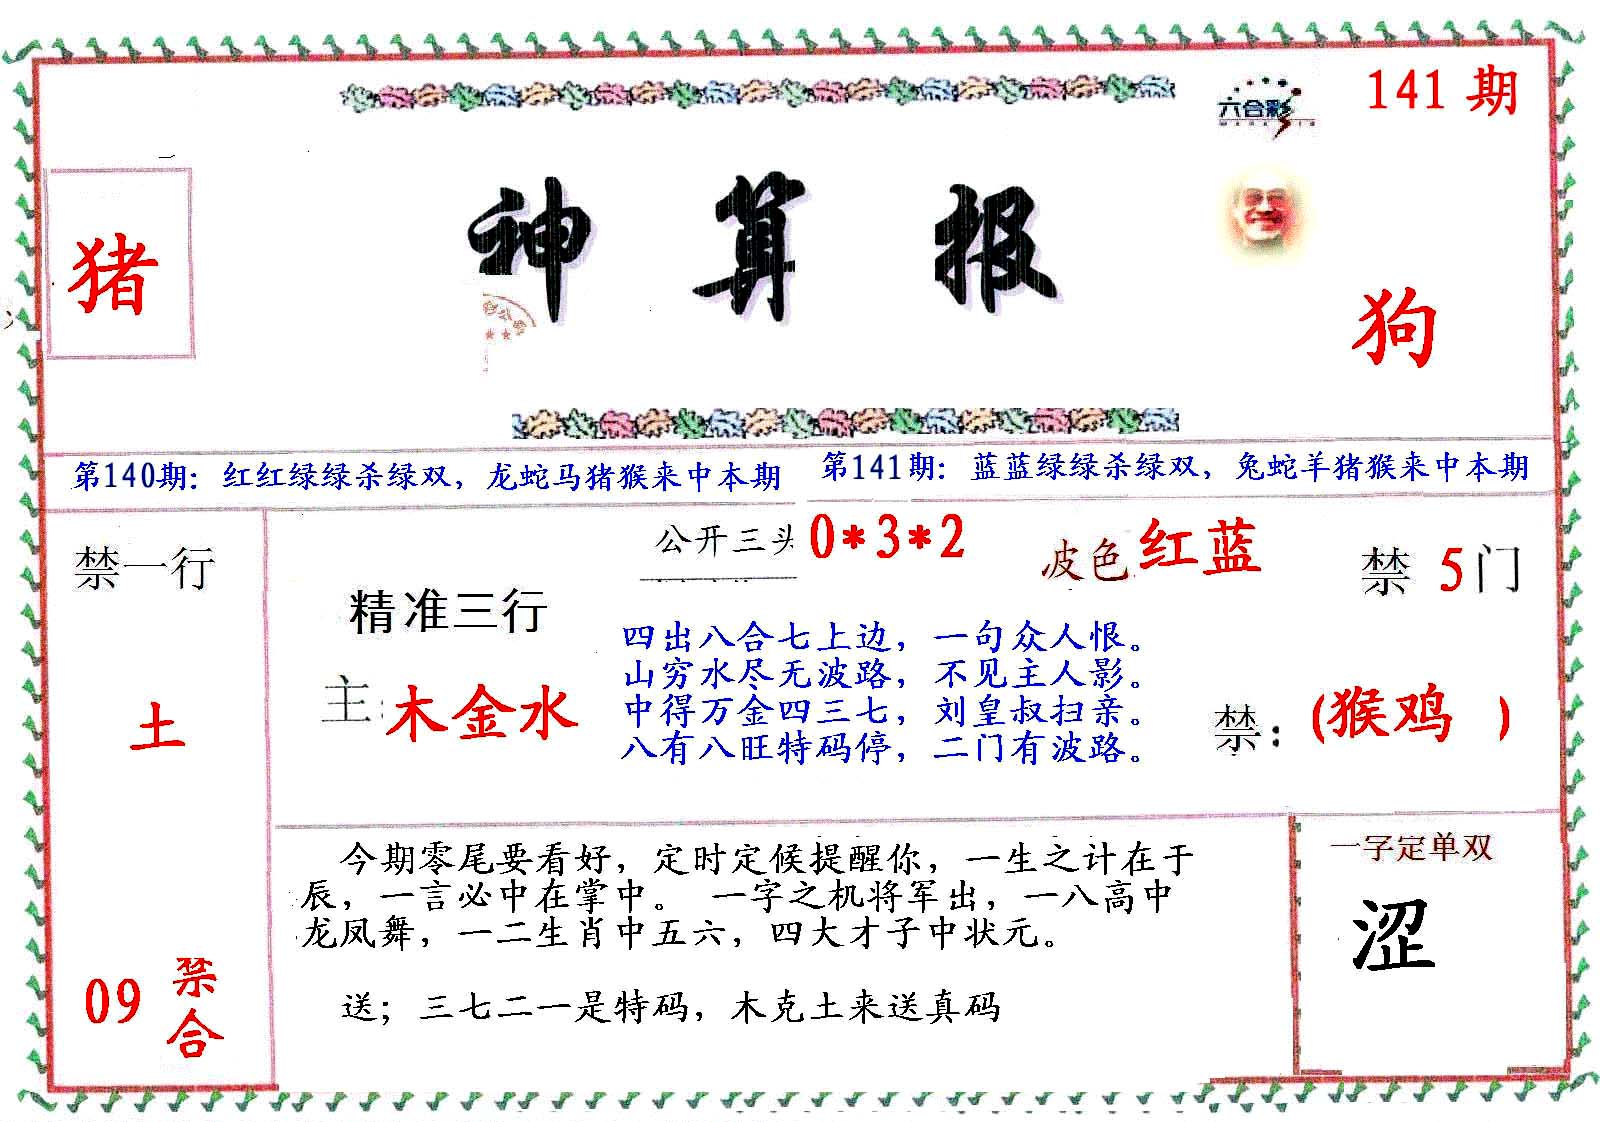 六合彩
141 期
猪
神算报
狗
第140期：红红绿绿杀绿双，龙蛇马猪猴来中本期
第141期：蓝蓝绿绿杀绿双，兔蛇羊猪猴来中本期
禁一行
土
09
禁合
公开三头
0*3*2
波色
红蓝
禁 5 门
精准三行
主：木金水
四出八合七上边，一句众人恨。
山穷水尽无波路，不见主人影。
中得万金四三七，刘皇叔扫亲。
八有八旺特码停，二门有波路。
禁：（猴鸡 ）
今期零尾要看好，定时定候提醒你，一生之计在于
辰，一言必中在掌中。 一字之机将军出，一八高中
龙凤舞，一二生肖中五六，四大才子中状元。
送；三七二一是特码，木克土来送真码
一字定单双
涩